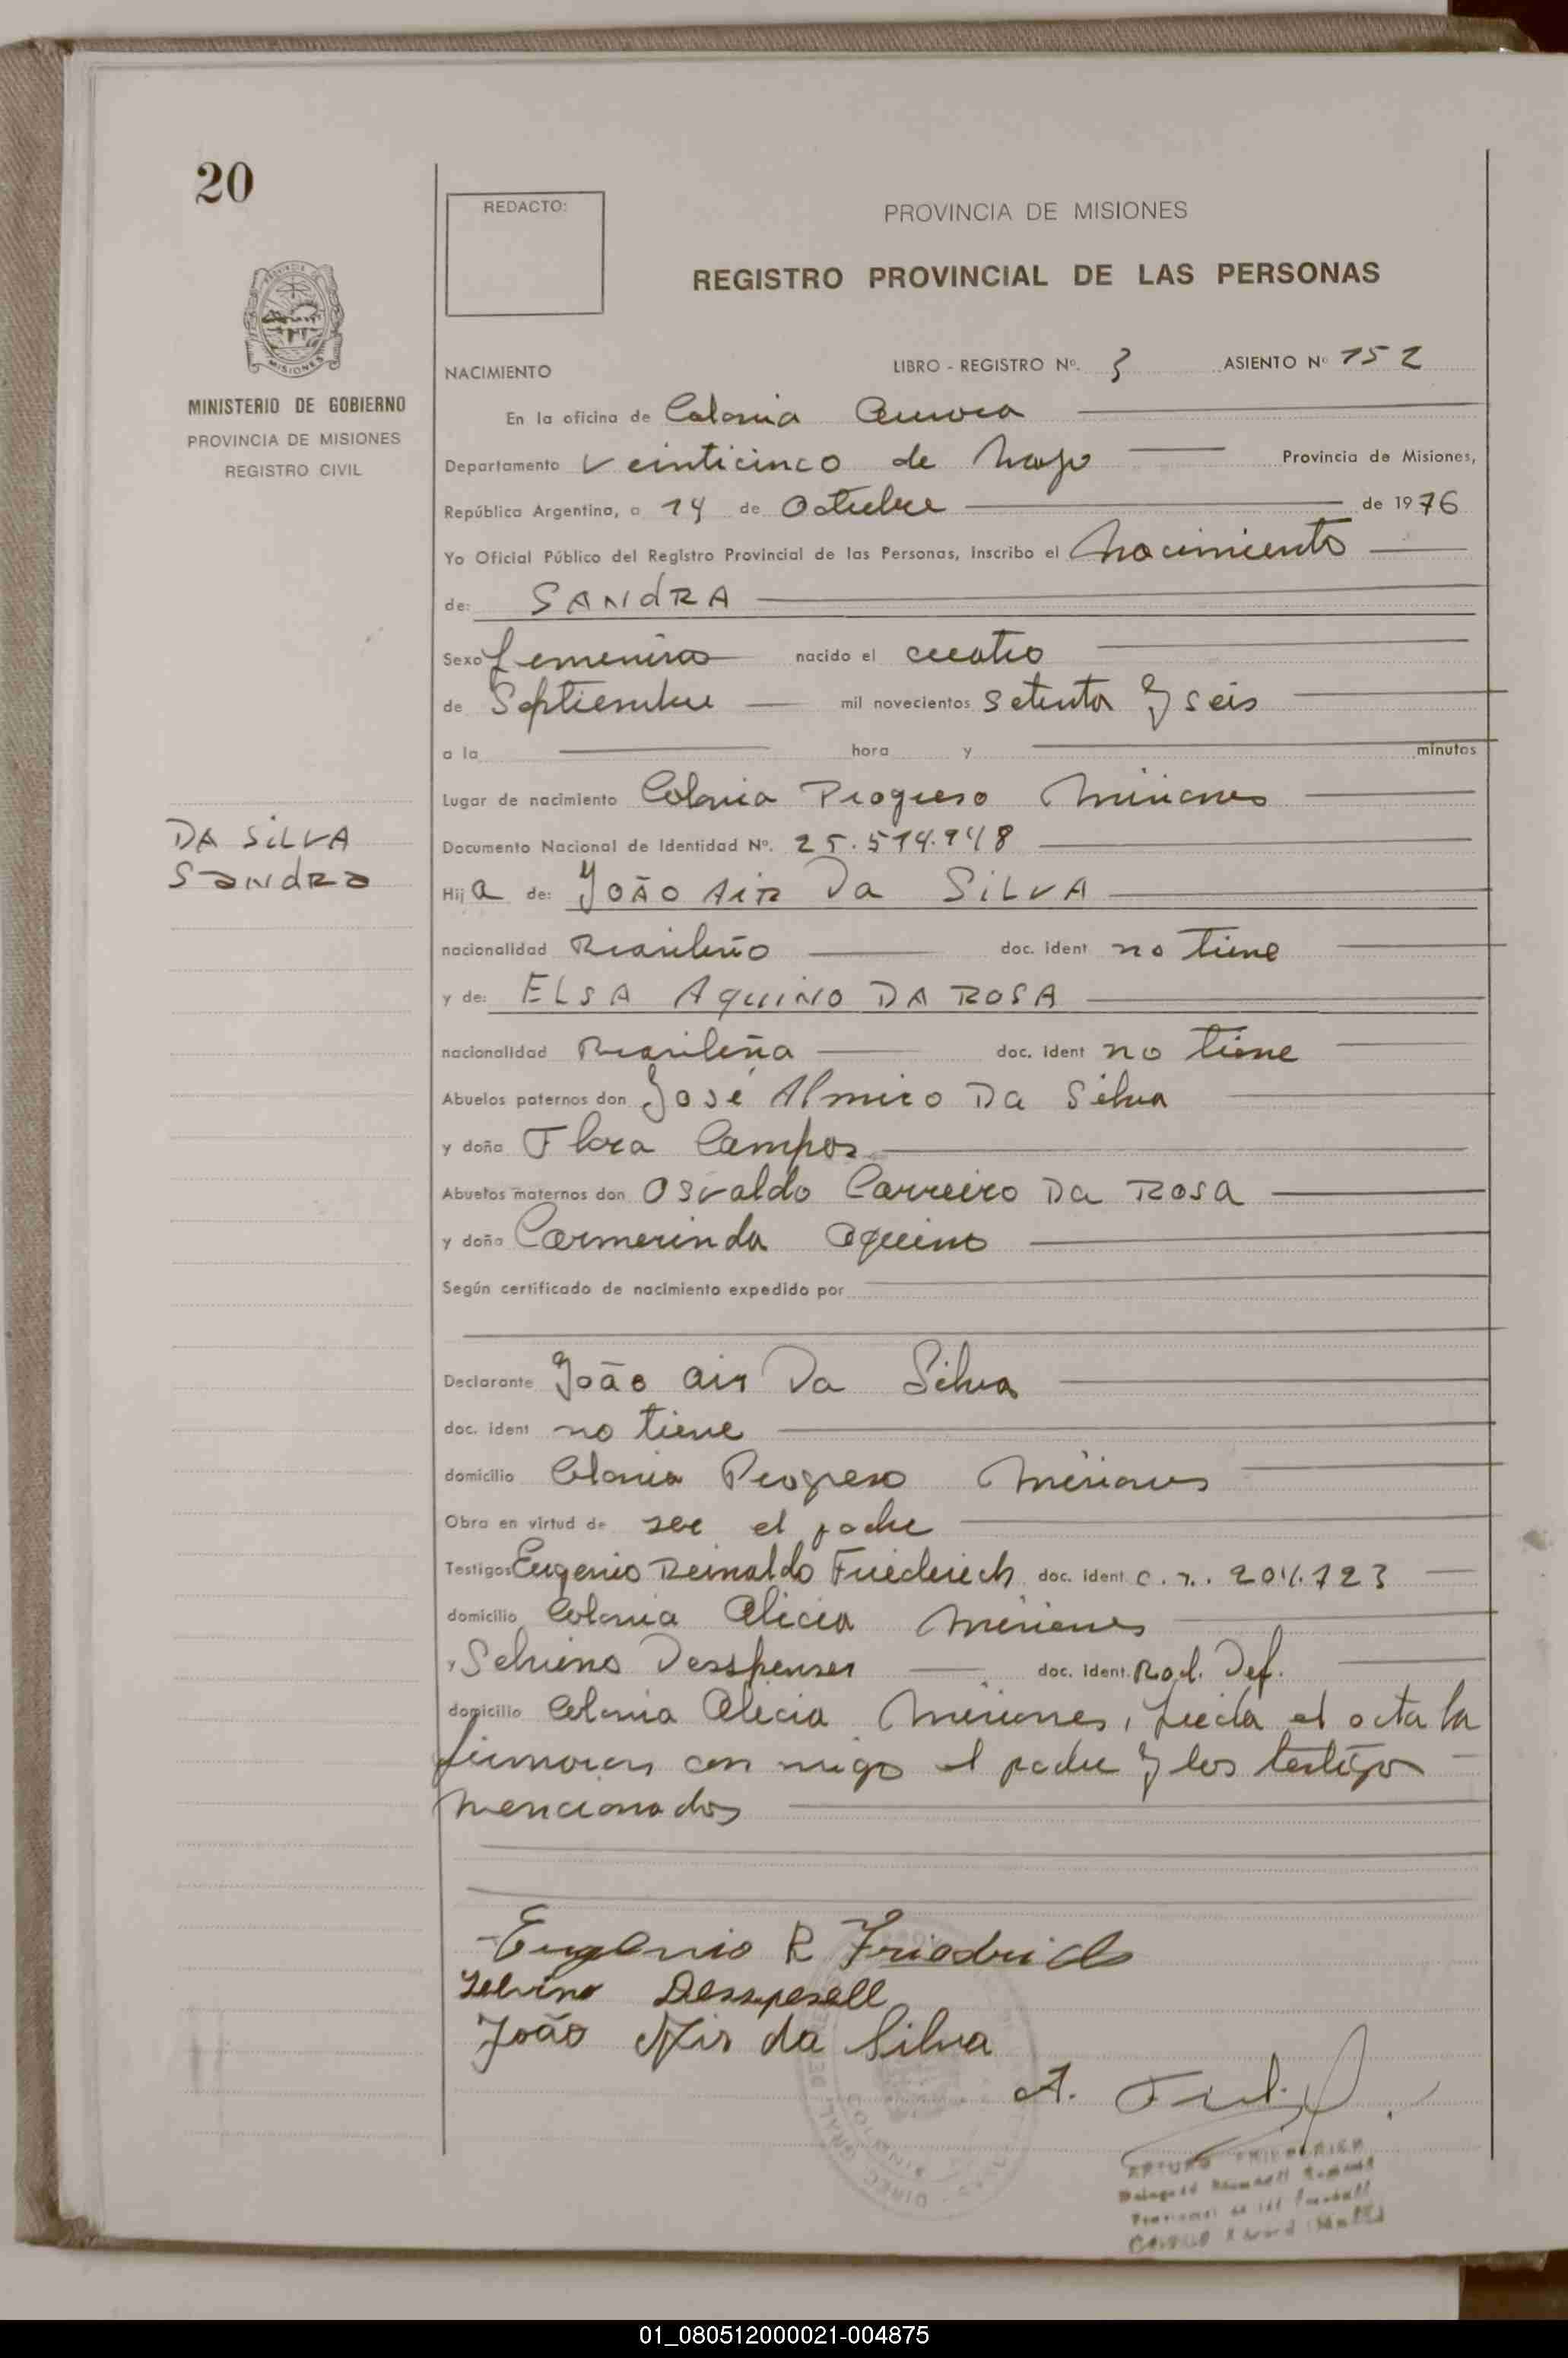 20
REDACTO:
PROVINCIA DE MISIONES
REGISTRO PROVINCIAL DE LAS PERSONAS
MISIONES
MINISTERIO DE GOBIERNO
PROVINCIA DE MISIONES
REGISTRO CIVIL
NACIMIENTO LIBRO - REGISTRO Nº. 3 ASIENTO Nº 152
En la oficina de Colonia Aurora
Departamento Veinticinco de Mayo Provincia de Misiones,
República Argentina, a 14 de Octubre de 1976
Yo Oficial Público del Registro Provincial de las Personas, inscribo el Nacimiento
de: SANdRA
Sexo femenino nacido el cuatro
de Septiembre mil novecientos setenta y seis
a la hora y minutos
Lugar de nacimiento Colonia Progreso Misiones
DA SiLVA
Sandra
Documento Nacional de Identidad Nº. 25.514.948
Hija de: JOÃO Air Da SiLVA
nacionalidad Brasileño doc. ident no tiene
y de: ELSA AquiNO DA ROSA
nacionalidad Brasileña doc. ident no tiene
Abuelos paternos don José Almiro Da Silva
y doña Flora Campos
Abuelos maternos don Osvaldo Carreiro Da Rosa
y doña Carmerinda Aquino
Según certificado de nacimiento expedido por
Declarante João Air Da Silva
doc. ident no tiene
domicilio Colonia Progreso Misiones
Obra en virtud de ser el padre
Testigos Eugenio Reinaldo Friederich doc. ident C.I. 204.723
domicilio Colonia Alicia Misiones
y Selvino Dessbenser doc. ident. Rad. Def.
domicilio Colonia Alicia Misiones, Leida el acta la
firmaran con migo el padre y los testigos
mencionados
Eugenio R Friedrich
Selvino Dessupesell
João Air da Silva
A.
01_080512000021-004875